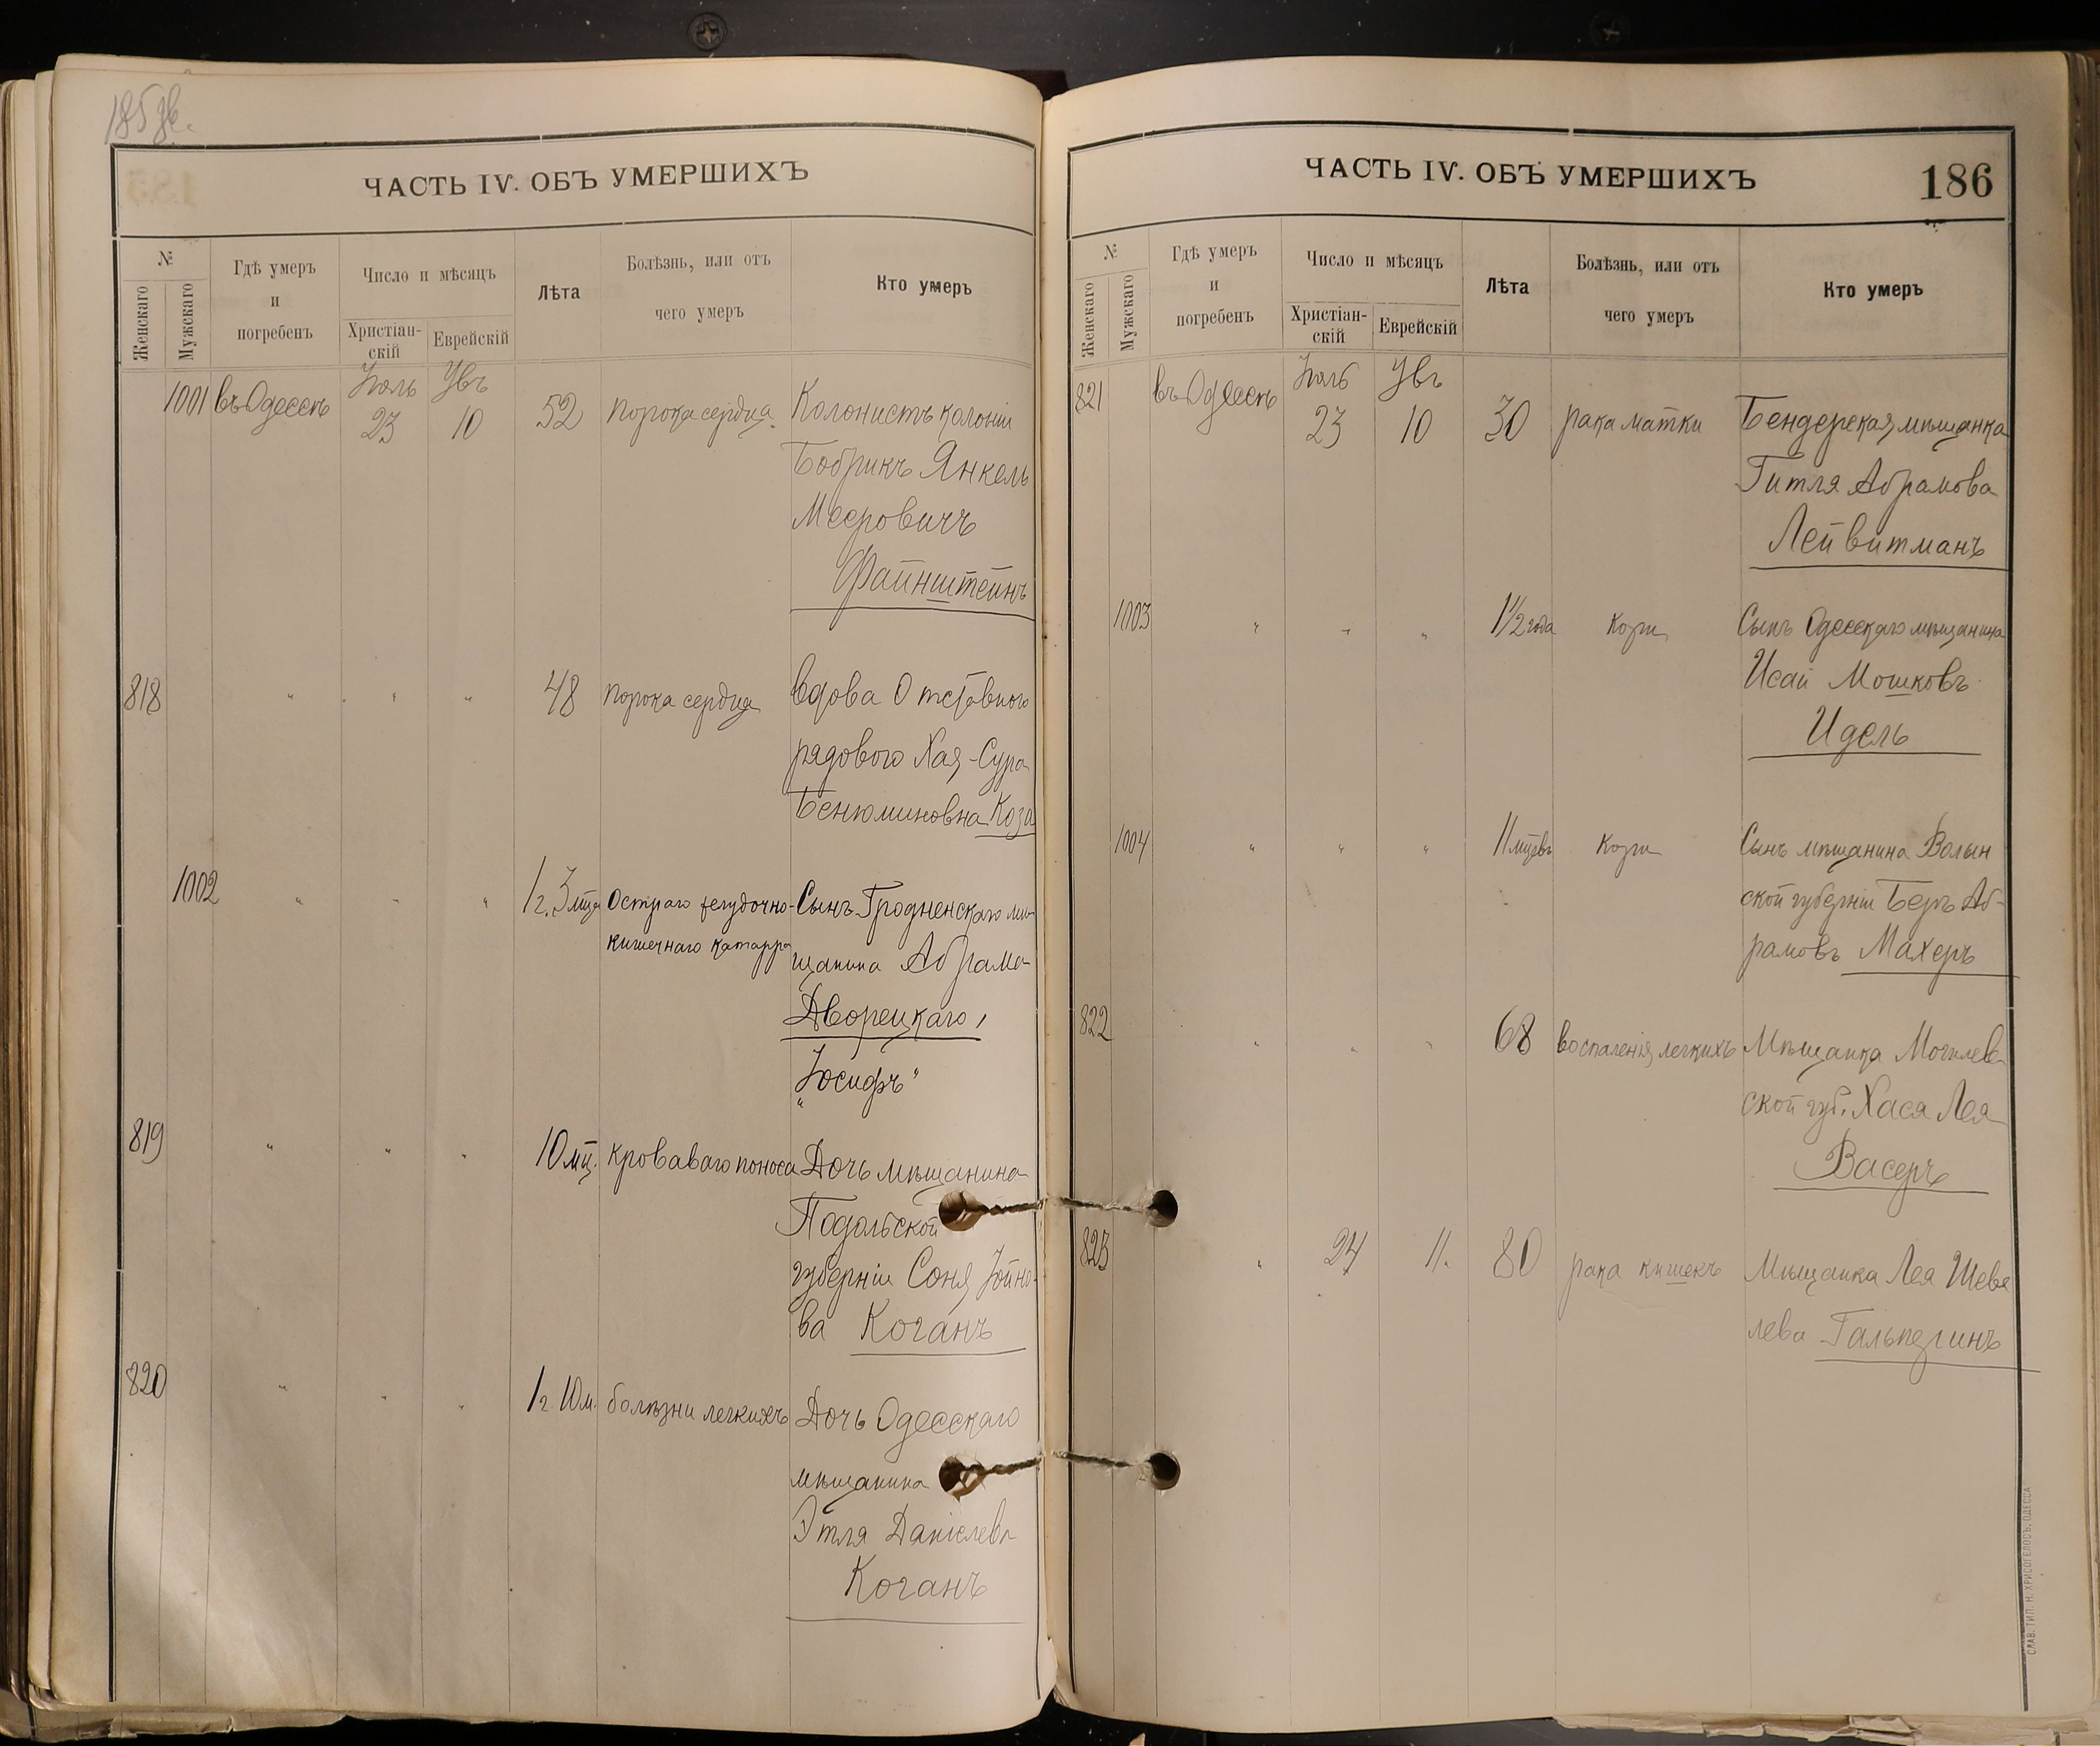 ЧАСТЬ IV. ОБЪ УМЕРШИХЪ
№
Женскаго
Мужскаго
Гдѣ умеръ
и
погребенъ
Число и мѣсяцъ
Христіан-
скій
Еврейскій
Лѣта
Болѣзнь, или отъ
чего умеръ
Кто умеръ
1001 въ Одессѣ Іюль 23 Увъ 10 52 порока сердца Колонистъ колоніи
Бобрикъ Янкель
Мееровичъ
Файнштейнъ
818 " " " " 48 порока сердца вдова Отставного
рядового Хая-Сура
Бенюминовна Коза
1002 " " " 1 г. 3 мца Остраго желудочно- Сынъ Гродненскаго мѣ-
кишечнаго катарра щанина Абрама
Дворецкаго,
"Іосифъ"
819 " " " 10 мц. кроваваго поноса Дочь мѣщанина
Подольской
губерніи Соня Іойно-
ва Коганъ
820 " " " 1 г. 10 м. болѣзни легкихъ Дочь Одесскаго
мѣщанина
Этля Даніелева
Коганъ
ЧАСТЬ IV. ОБЪ УМЕРШИХЪ
186
№
Женскаго
Мужскаго
Гдѣ умеръ
и
погребенъ
Число и мѣсяцъ
Христіан-
скій
Еврейскій
Лѣта
Болѣзнь, или отъ
чего умеръ
Кто умеръ
821 въ Одессѣ Іюль 23 Увъ 10 30 рака матки Бендерская мѣщанка
Гитля Абрамова
Лейвитманъ
1003 " " " 1 1/2 года Кори Сынъ Одесскаго мѣщанина
Исай Мошковъ
Идель
1004 " " " 11 мцевъ Кори Сынъ мѣщанина Волын
ской губерніи Беръ Аб-
рамовъ Махеръ
822 " " " 68 воспаленія легкихъ Мѣщанка Могилев
ской губ. Хася Лея
Васеръ
823 " 24 11. 80 рака кишекъ Мѣщанка Лея Шеве
лева Гальперинъ
СЛАВ. ТИП. Н. ХРИСОГЕЛОСЪ, ОДЕССА